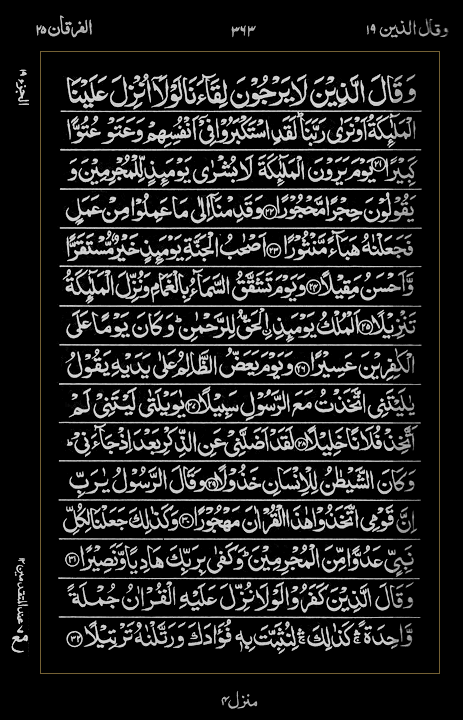 وقال الذین ۱۹
۳۶۳
الفرقان ۲۵
وَقَالَ الَّذِيْنَ لَا يَرْجُوْنَ لِقَآءَنَا لَوْلَاۤ اُنْزِلَ عَلَيْنَا
الْمَلٰٓئِكَةُ اَوْ نَرٰى رَبَّنَاؕ لَقَدِ اسْتَكْبَرُوْا فِيْۤ اَنْفُسِهِمْ وَعَتَوْ عُتُوًّا
كَبِيْرًا ۝۲۱ يَوْمَ يَرَوْنَ الْمَلٰٓئِكَةَ لَا بُشْرٰى يَوْمَىِٕذٍ لِّلْمُجْرِمِيْنَ وَ
يَقُوْلُوْنَ حِجْرًا مَّحْجُوْرًا ۝۲۲ وَقَدِمْنَاۤ اِلٰى مَا عَمِلُوْا مِنْ عَمَلٍ
فَجَعَلْنٰهُ هَبَآءً مَّنْثُوْرًا ۝۲۳ اَصْحٰبُ الْجَنَّةِ يَوْمَىِٕذٍ خَيْرٌ مُّسْتَقَرًّا
وَّاَحْسَنُ مَقِيْلًا ۝۲۴ وَيَوْمَ تَشَقَّقُ السَّمَآءُ بِالْغَمَامِ وَنُزِّلَ الْمَلٰٓئِكَةُ
تَنْزِيْلًا ۝۲۵ اَلْمُلْكُ يَوْمَىِٕذِ اِۨلْحَقُّ لِلرَّحْمٰنِؕ وَكَانَ يَوْمًا عَلَى
الْكٰفِرِيْنَ عَسِيْرًا ۝۲۶ وَيَوْمَ يَعَضُّ الظَّالِمُ عَلٰى يَدَيْهِ يَقُوْلُ
يٰلَيْتَنِى اتَّخَذْتُ مَعَ الرَّسُوْلِ سَبِيْلًا ۝۲۷ يٰوَيْلَتٰى لَيْتَنِيْ لَمْ
اَتَّخِذْ فُلَانًا خَلِيْلًا ۝۲۸ لَقَدْ اَضَلَّنِيْ عَنِ الذِّكْرِ بَعْدَ اِذْ جَآءَنِيْؕ
وَكَانَ الشَّيْطٰنُ لِلْاِنْسَانِ خَذُوْلًا ۝۲۹ وَقَالَ الرَّسُوْلُ يٰرَبِّ
اِنَّ قَوْمِى اتَّخَذُوْا هٰذَا الْقُرْاٰنَ مَهْجُوْرًا ۝۳۰ وَكَذٰلِكَ جَعَلْنَا لِكُلِّ
نَبِيٍّ عَدُوًّا مِّنَ الْمُجْرِمِيْنَؕ وَكَفٰى بِرَبِّكَ هَادِيًا وَّنَصِيْرًا ۝۳۱
وَقَالَ الَّذِيْنَ كَفَرُوْا لَوْلَا نُزِّلَ عَلَيْهِ الْقُرْاٰنُ جُمْلَةً
وَّاحِدَةًۛۚ كَذٰلِكَۛۚ لِنُثَبِّتَ بِهٖ فُؤَادَكَ وَرَتَّلْنٰهُ تَرْتِيْلًا ۝۳۲
الجزء ۱۹
عند المتقدمین ۱۲
منزل ۴